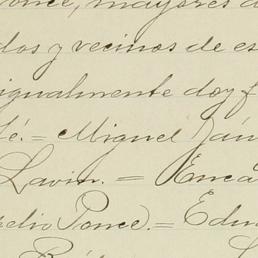 Ponce, mayores d
dos y vecinos de es
igualmente doy f
fé.= Miguel Ján
Lavin. = Enca
pedio Ponce).= Edu